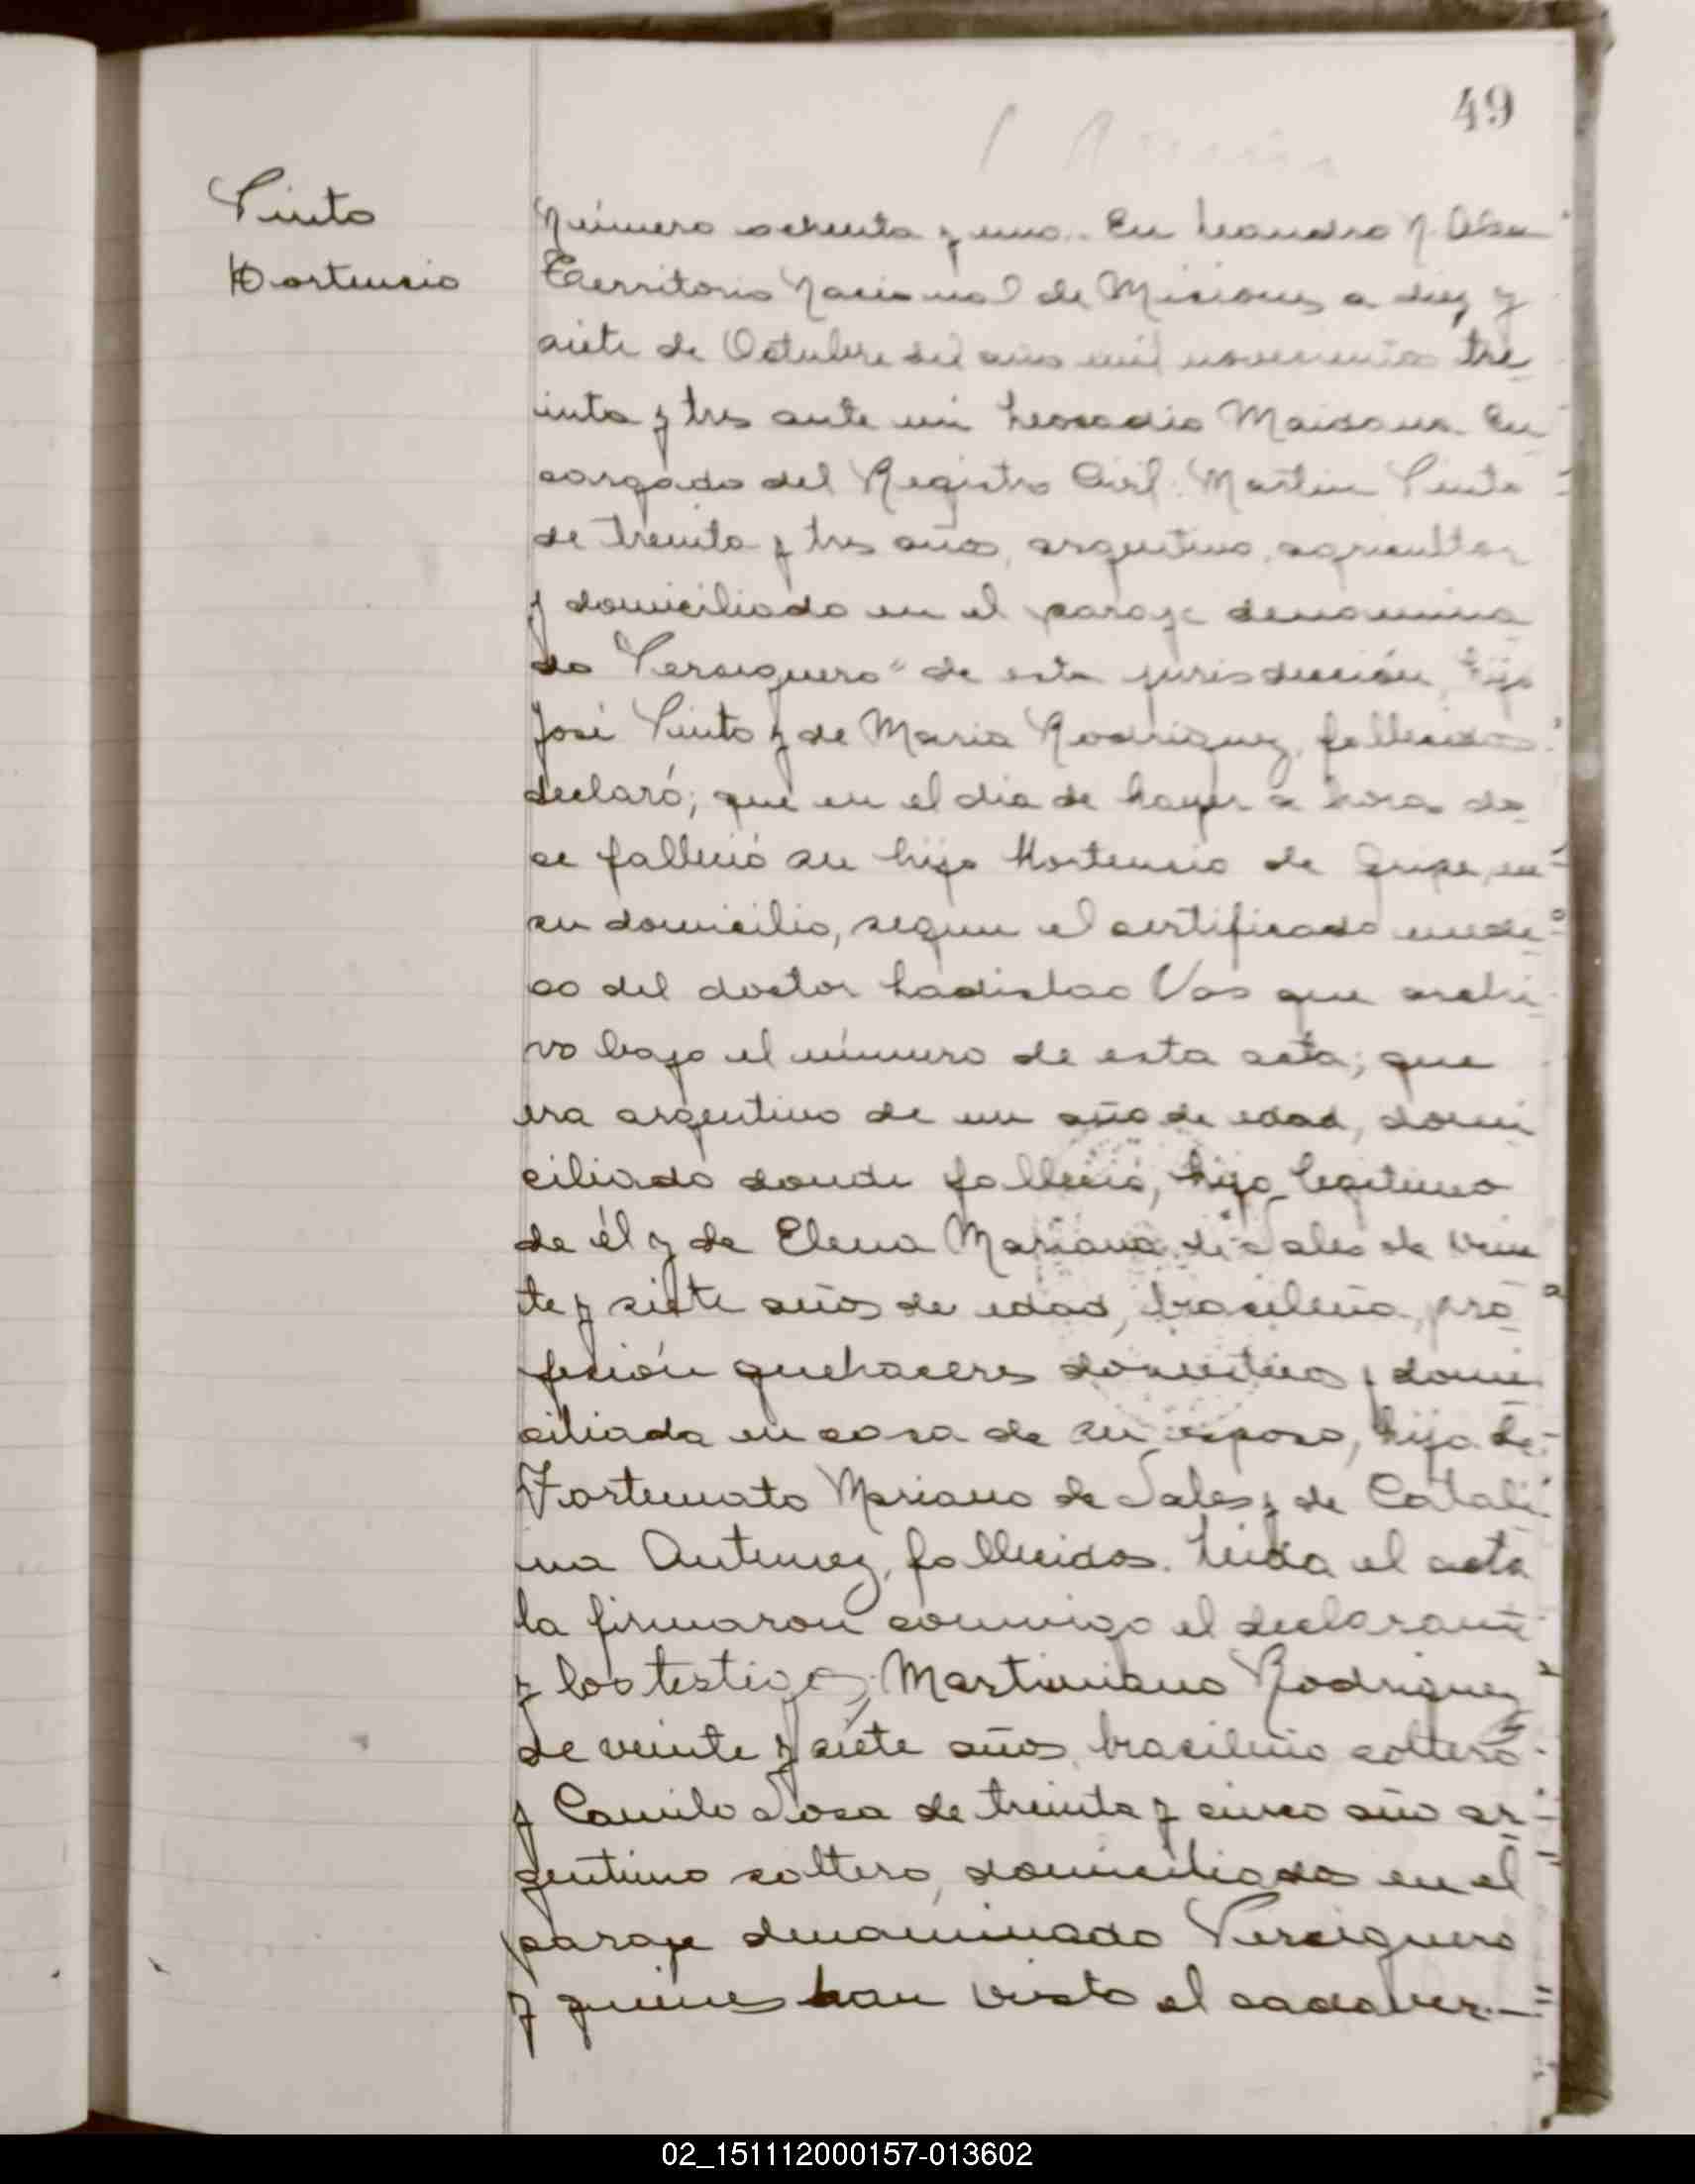 49
Pinto
Hortencio
Número ochenta y uno. En Leandro N. Alem
Territorio Nacional de Misiones a diez y
siete de Octubre del año mil novecientos tre
inta y tres ante mi Leocadio Maidana En
cargado del Registro Civil: Martin Pinto
de treinta y tres años, argentino, agricultor
y domiciliado en el paraje denomina
do "Persiguero" de esta jurisdicción, hijo
José Pinto y de Maria Rodriguez, fallecidos
declaró; que en el dia de hayer a horas do
ce falleció su hijo Hortencio de gripe, en
su domicilio, segun el certificado medi
co del doctor Ladislao Vas que archi
vo bajo el número de esta acta; que
era argentino de un año de edad, domi
ciliado donde falleció, hijo legitimo
de él y de Elena Mariana de Sales de vein
te y siete años de edad, brasileña, pro
fesión quehaceres domesticos y domi
ciliada en casa de su esposo, hija de
Fortunato Mariano de Sales y de Catali
na Antunez, fallecidos. Leida el acta
la firmaron conmigo el declarante
y los testigos; Martiniano Rodriguez
de veinte y siete años, brasileño soltero
y Camilo Sosa de treinta y cinco año ar
gentino soltero, domiciliados en el
paraje denominado Persiguero
y quienes han visto el cadaver.—
02_151112000157-013602